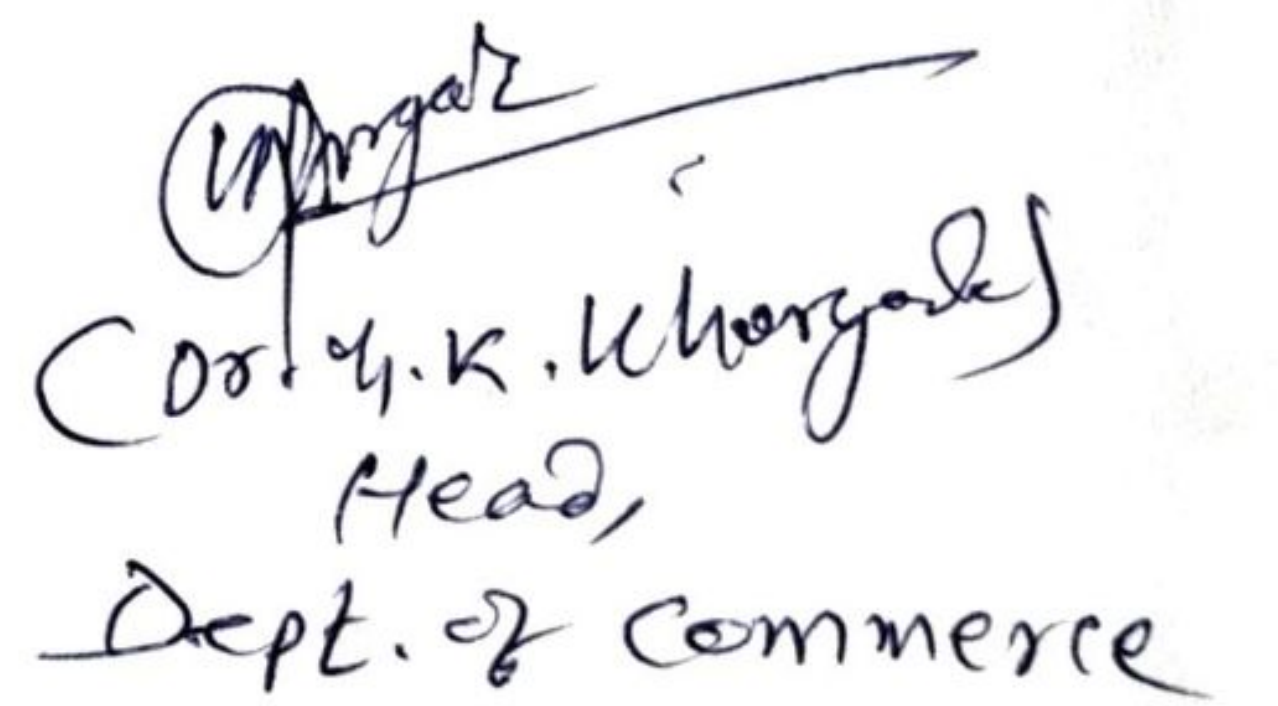 (Dr. Y. K. Khargade)
Head,
Dept. of Commerce